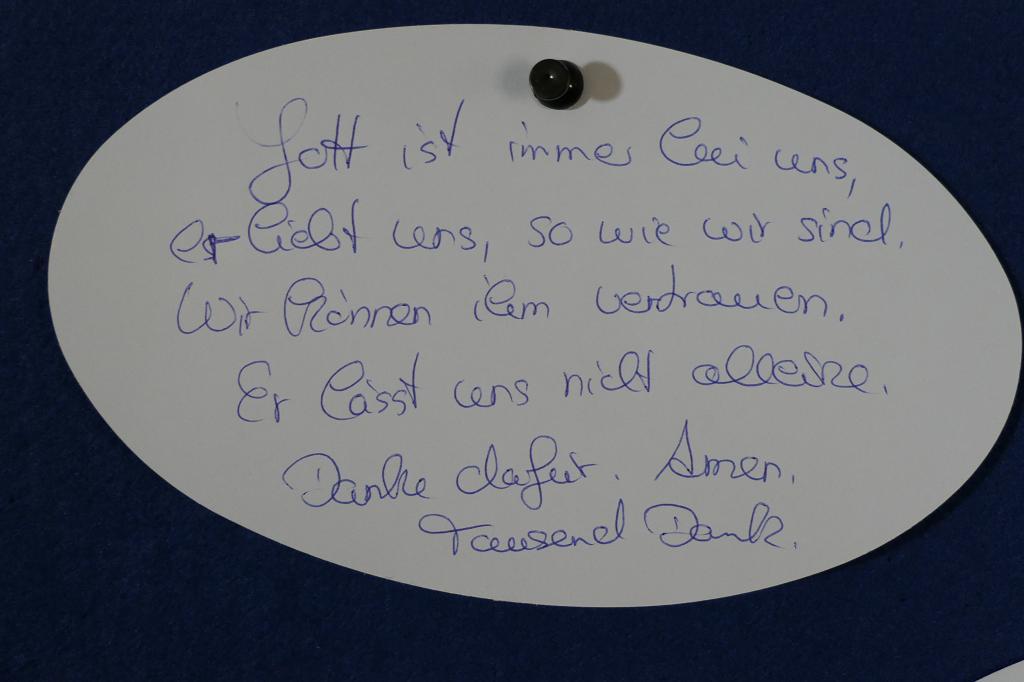 Gott ist immer bei uns,
er liebt uns, so wie wir sind.
Wir können ihm vertrauen.
Er lässt uns nicht alleine.
Danke dafür. Amen.
Tausend Dank.